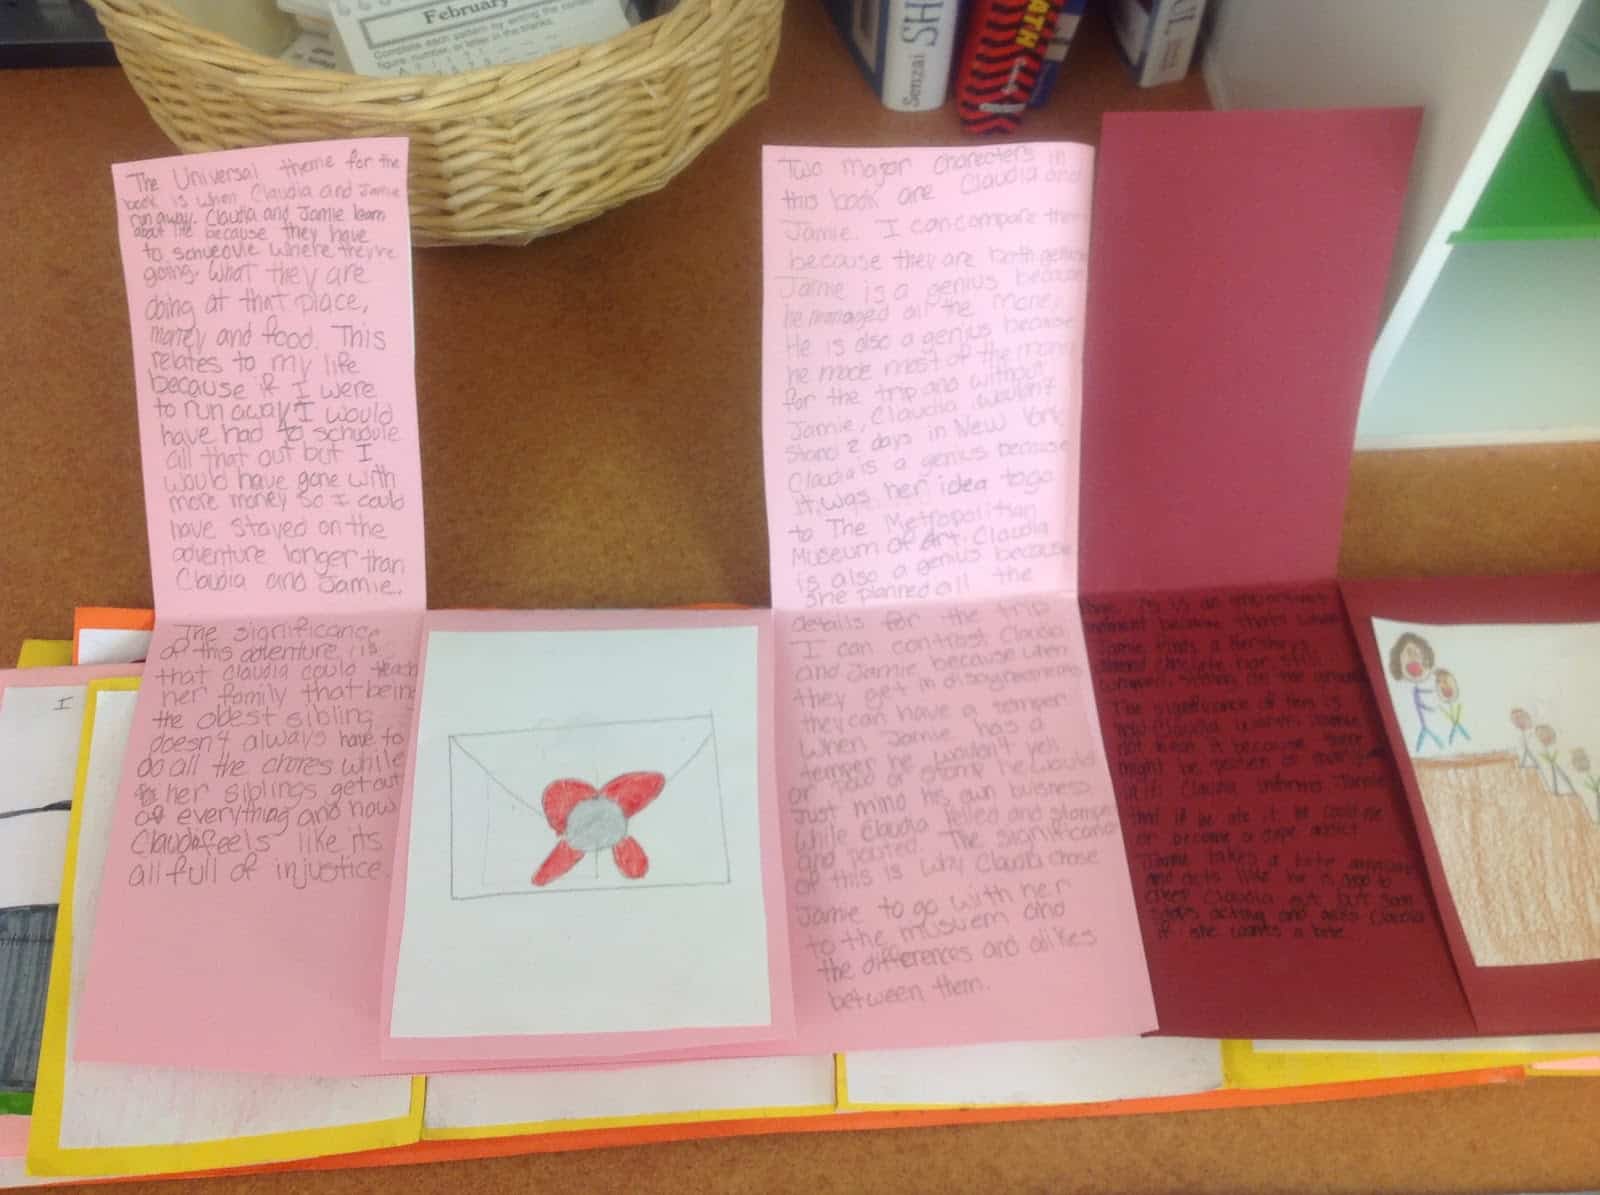 February
Complete each pattern by writing the correct
figure, number, or letter in the blanks.
Senzai SH
MATH
The Universal theme for the
book is when Claudia and Jamie
run away. Claudia and Jamie learn
about life because they have
to schueovle where they're
going, what they are
doing at that place,
money and food. This
relates to my life
because if I were
to run away I would
have had to schudule
all that out but I
would have gone with
more money so I could
have stayed on the
adventure longer than
Claudia and Jamie.
The significance
of this adventure is
that Claudia could teach
her family that being
the oldest sibling
doesn't always have to
do all the chores while
her siblings get out
of everything and how
Claudia feels like its
all full of injustice.
I
Two major charecters in
this book are Claudia and
Jamie. I can compare them
because they are both genius
Jamie is a genius because
he managed all the money.
He is also a genius because
he made most of the money
for the trip and without
Jamie, Claudia wouldn't
stand 2 days in New York.
Claudia is a genius because
it was her idea to go
to The Metropolitian
Museum of Art. Claudia
is also a genius because
she planned all the
details for the trip
I can contrast Claudia
and Jamie because when
they get in disagreements
they can have a temper
When Jamie has a
temper he wouldn't yell
or pout or stomp he would
just mind his own business
while Claudia yelled and stomped
and pouted. The significance
of this is why Claudia chose
Jamie to go with her
to the musuem and
the differences and alikes
between them.
is an important
moment because that's when
Jamie finds a Hershey's
almond chocolate bar still
wrapped, sitting on the ground
The significance of this is
how Claudia warns Jamie
not to eat it because there
might be poison or
in it. Claudia informs Jamie
that if he ate it he could die
or become a dope addict
Jamie takes a bite anyway
and acts like he is about to
Claudia out but soon
stops acting and asks Claudia
if she wants a bite.